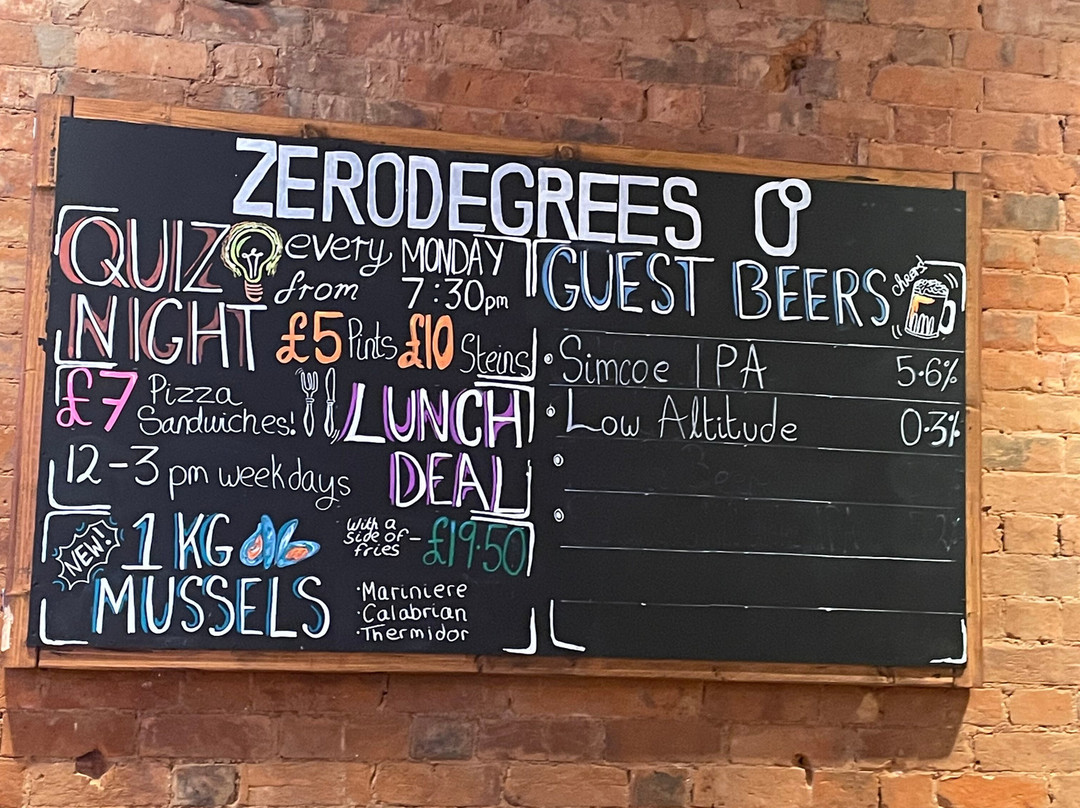 ZERODEGREES
QUIZ every MONDAY
NIGHT from 7:30pm
£5 Pints £10 Steins
£7 Pizza
Sandwiches!
LUNCH
DEAL
12-3 pm weekdays
NEW! 1 KG
MUSSELS
With a
side of -
fries
£19.50
·Mariniere
·Calabrian
·Thermidor
GUEST BEERS
cheers!
Simcoe IPA 5.6%
Low Altitude 0.3%